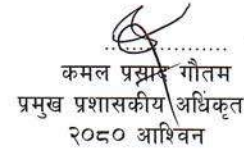 ...................
कमल प्रसाद गौतम
प्रमुख प्रशासकीय अधिकृत
२०८० आश्विन